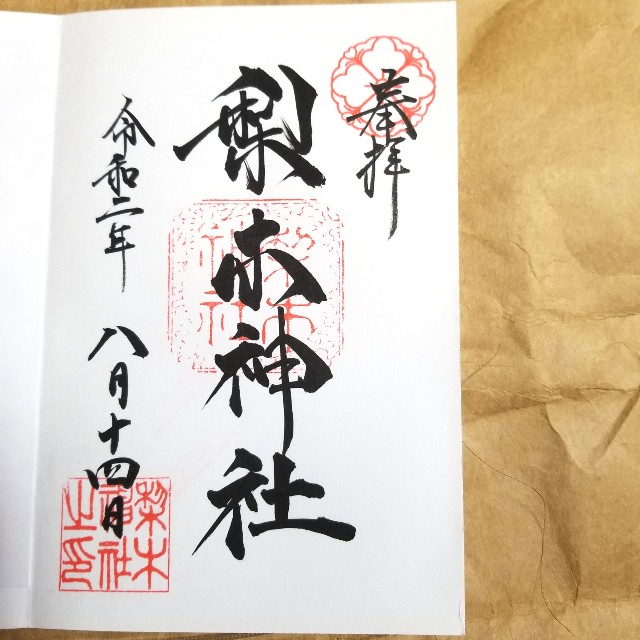 奉拝
梨木神社
令和二年 八月十四日
梨木
神社
之印